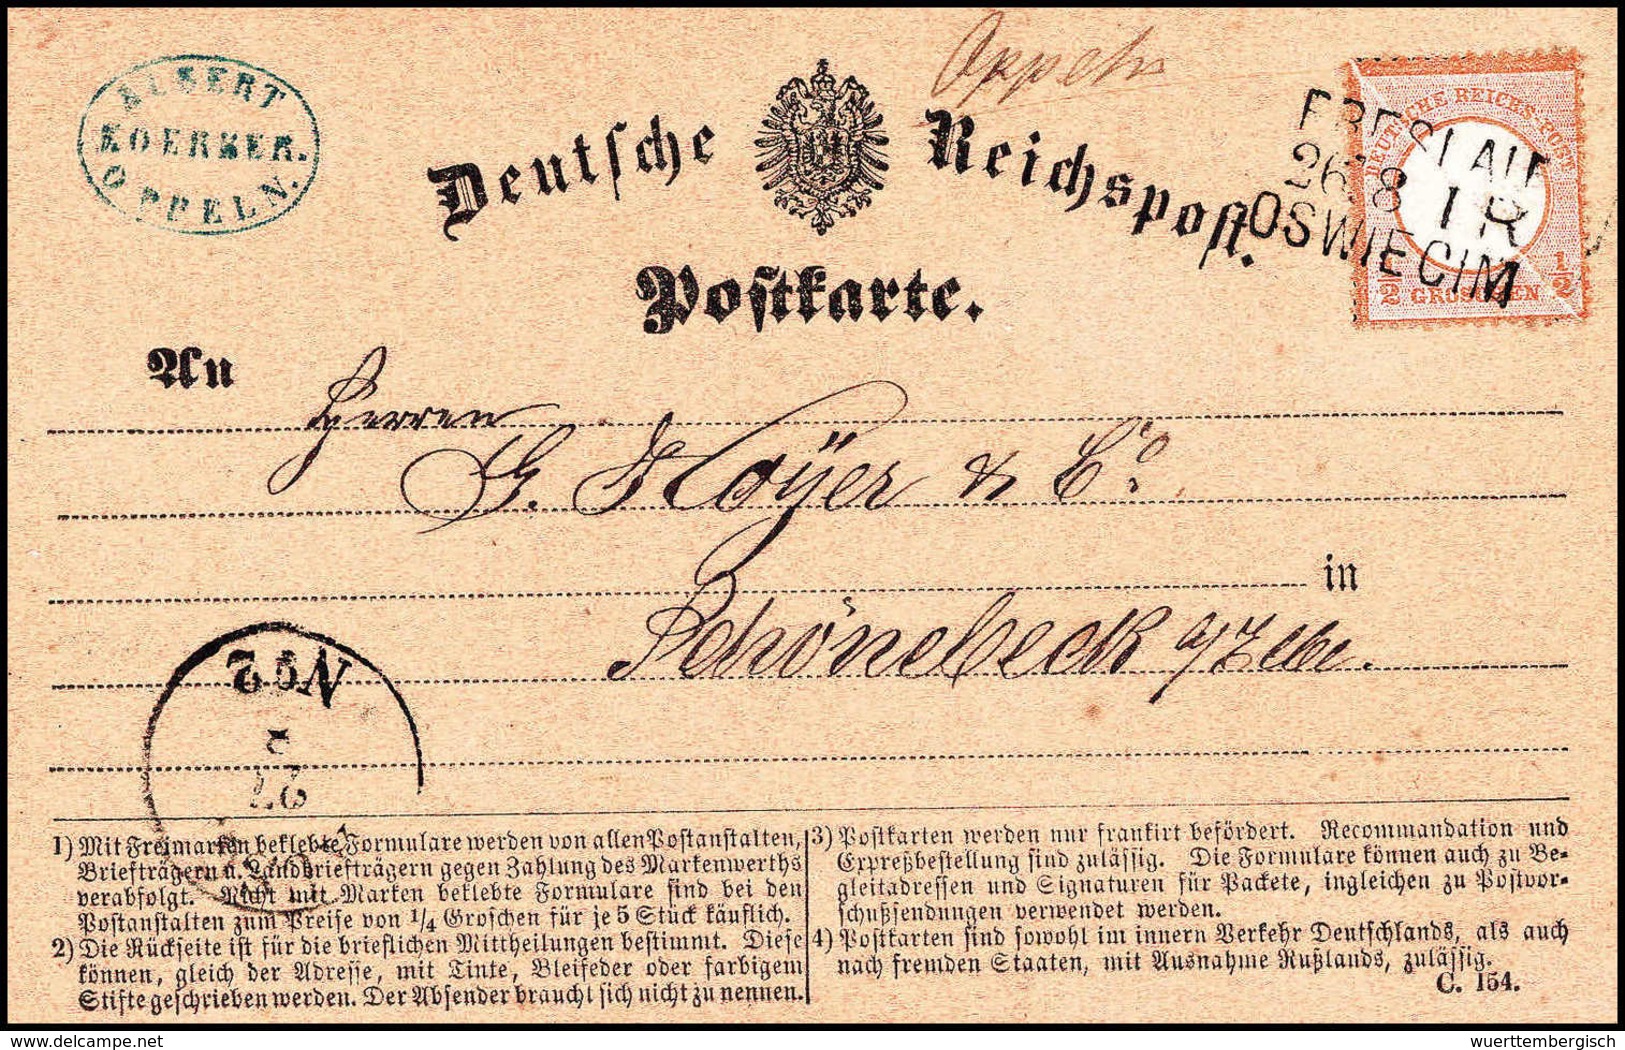 ALBERT
KOERBER.
OPPELN.
Oppeln
Deutsche Reichspost.
Postkarte.
DEUTSCHE REICHS-POST
1/2 GROSCHEN 1/2
BRESLAU
26 8 I R
OSWIECIM
An
Herren
G. Hoÿer & Co.
in
Schönebeck a/Elbe.
No 2
27
1) Mit Freimarken beklebte Formulare werden von allen Postanstalten,
Briefträgern u. Landbriefträgern gegen Zahlung des Markenwerths
verabfolgt. Nicht mit Marken beklebte Formulare sind bei den
Postanstalten zum Preise von 1/4 Groschen für je 5 Stück käuflich.
2) Die Rückseite ist für die brieflichen Mittheilungen bestimmt. Diese
können, gleich der Adresse, mit Tinte, Bleifeder oder farbigem
Stifte geschrieben werden. Der Absender braucht sich nicht zu nennen.
3) Postkarten werden nur frankirt befördert. Recommandation und
Expreßbestellung sind zulässig. Die Formulare können auch zu Be-
gleitadressen und Signaturen für Packete, ingleichen zu Postvor-
schußsendungen verwendet werden.
4) Postkarten sind sowohl im innern Verkehr Deutschlands, als auch
nach fremden Staaten, mit Ausnahme Rußlands, zulässig.
C. 154.
© delcampe.net
wuerttembergisch